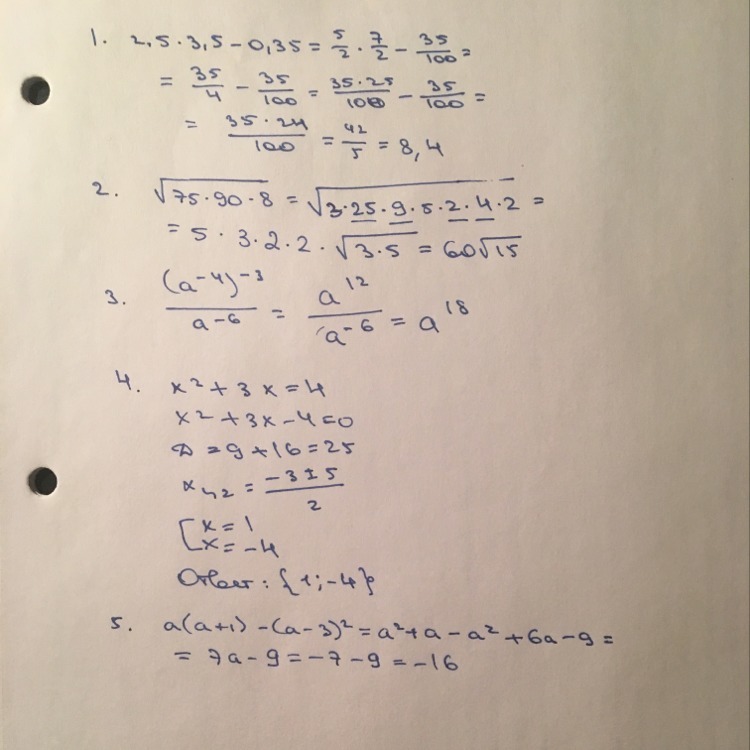 1. 2,5 · 3,5 - 0,35 = 5/2 · 7/2 - 35/100 =
= 35/4 - 35/100 = 35·25/100 - 35/100 =
= 35 · 24/100 = 42/5 = 8,4
2. √(75·90·8) = √(3·25·9·5·2·4·2) =
= 5 · 3·2·2 · √(3·5) = 60√15
3. (a⁻⁴)⁻³/a⁻⁶ = a¹²/a⁻⁶ = a¹⁸
4. x² + 3x = 4
x² + 3x - 4 = 0
D = 9 + 16 = 25
x₁,₂ = (-3 ± 5)/2
[x = 1
x = -4
Ответ: {1; -4}
5. a(a+1) - (a-3)² = a² + a - a² + 6a - 9 =
= 7a - 9 = -7 - 9 = -16